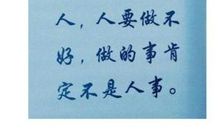 人，人要做不
好，做的事肯
定不是人事。